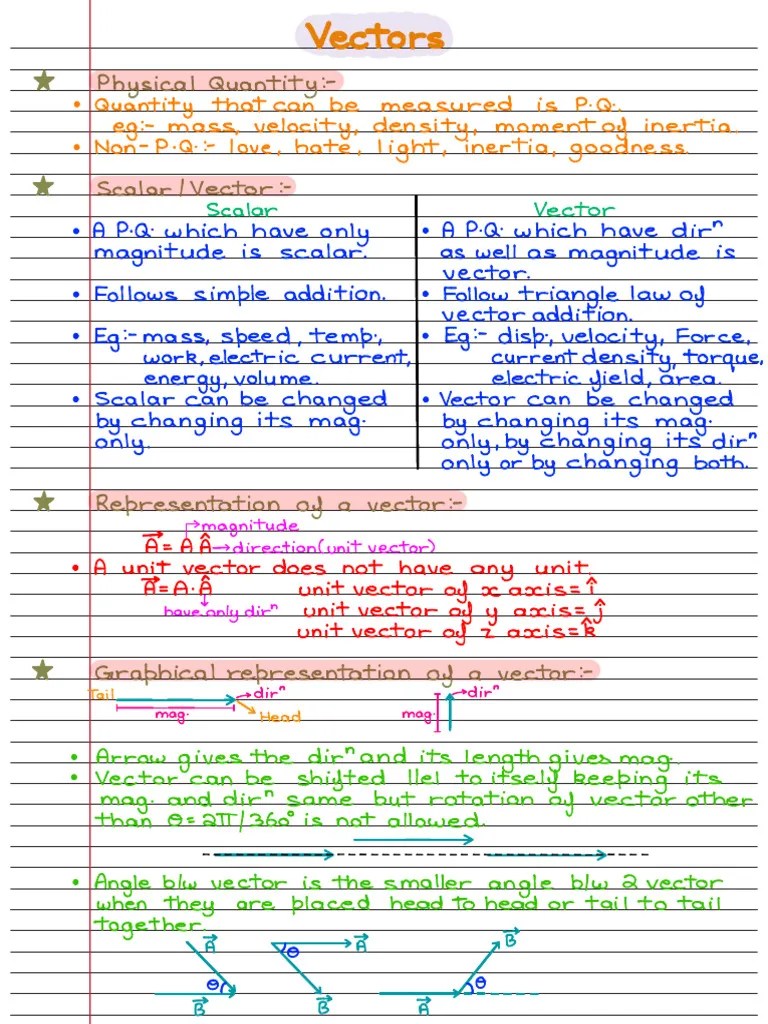 Vectors
Physical Quantity:-
• Quantity that can be measured is P.Q.
eg:- mass, velocity, density, moment of inertia.
• Non-P.Q.:- love, hate, light, inertia, goodness.
Scalar/Vector:-
Scalar
• A P.Q. which have only
magnitude is scalar.
• Follows simple addition.
• Eg:- mass, speed, temp.,
work, electric current,
energy, volume.
• Scalar can be changed
by changing its mag.
only.
Vector
• A P.Q. which have dirⁿ
as well as magnitude is
vector.
• Follow triangle law of
vector addition.
• Eg:- disp., velocity, Force,
current density, torque,
electric field, area.
• Vector can be changed
by changing its mag.
only, by changing its dirⁿ
only or by changing both.
Representation of a vector:-
magnitude
A⃗ = A Â → direction(unit vector)
• A unit vector does not have any unit.
A⃗ = A·Â unit vector of x axis = î
have only dirⁿ unit vector of y axis = ĵ
unit vector of z axis = k̂
Graphical representation of a vector:-
Tail dirⁿ dirⁿ
mag. Head mag.
• Arrow gives the dirⁿ and its length gives mag.
• Vector can be shifted llel to itself keeping its
mag. and dirⁿ same but rotation of vector other
than θ=2π/360° is not allowed.
• Angle b/w vector is the smaller angle b/w 2 vector
when they are placed head to head or tail to tail
together.
A⃗ θ A⃗ B⃗
θ θ
B⃗ B⃗ A⃗